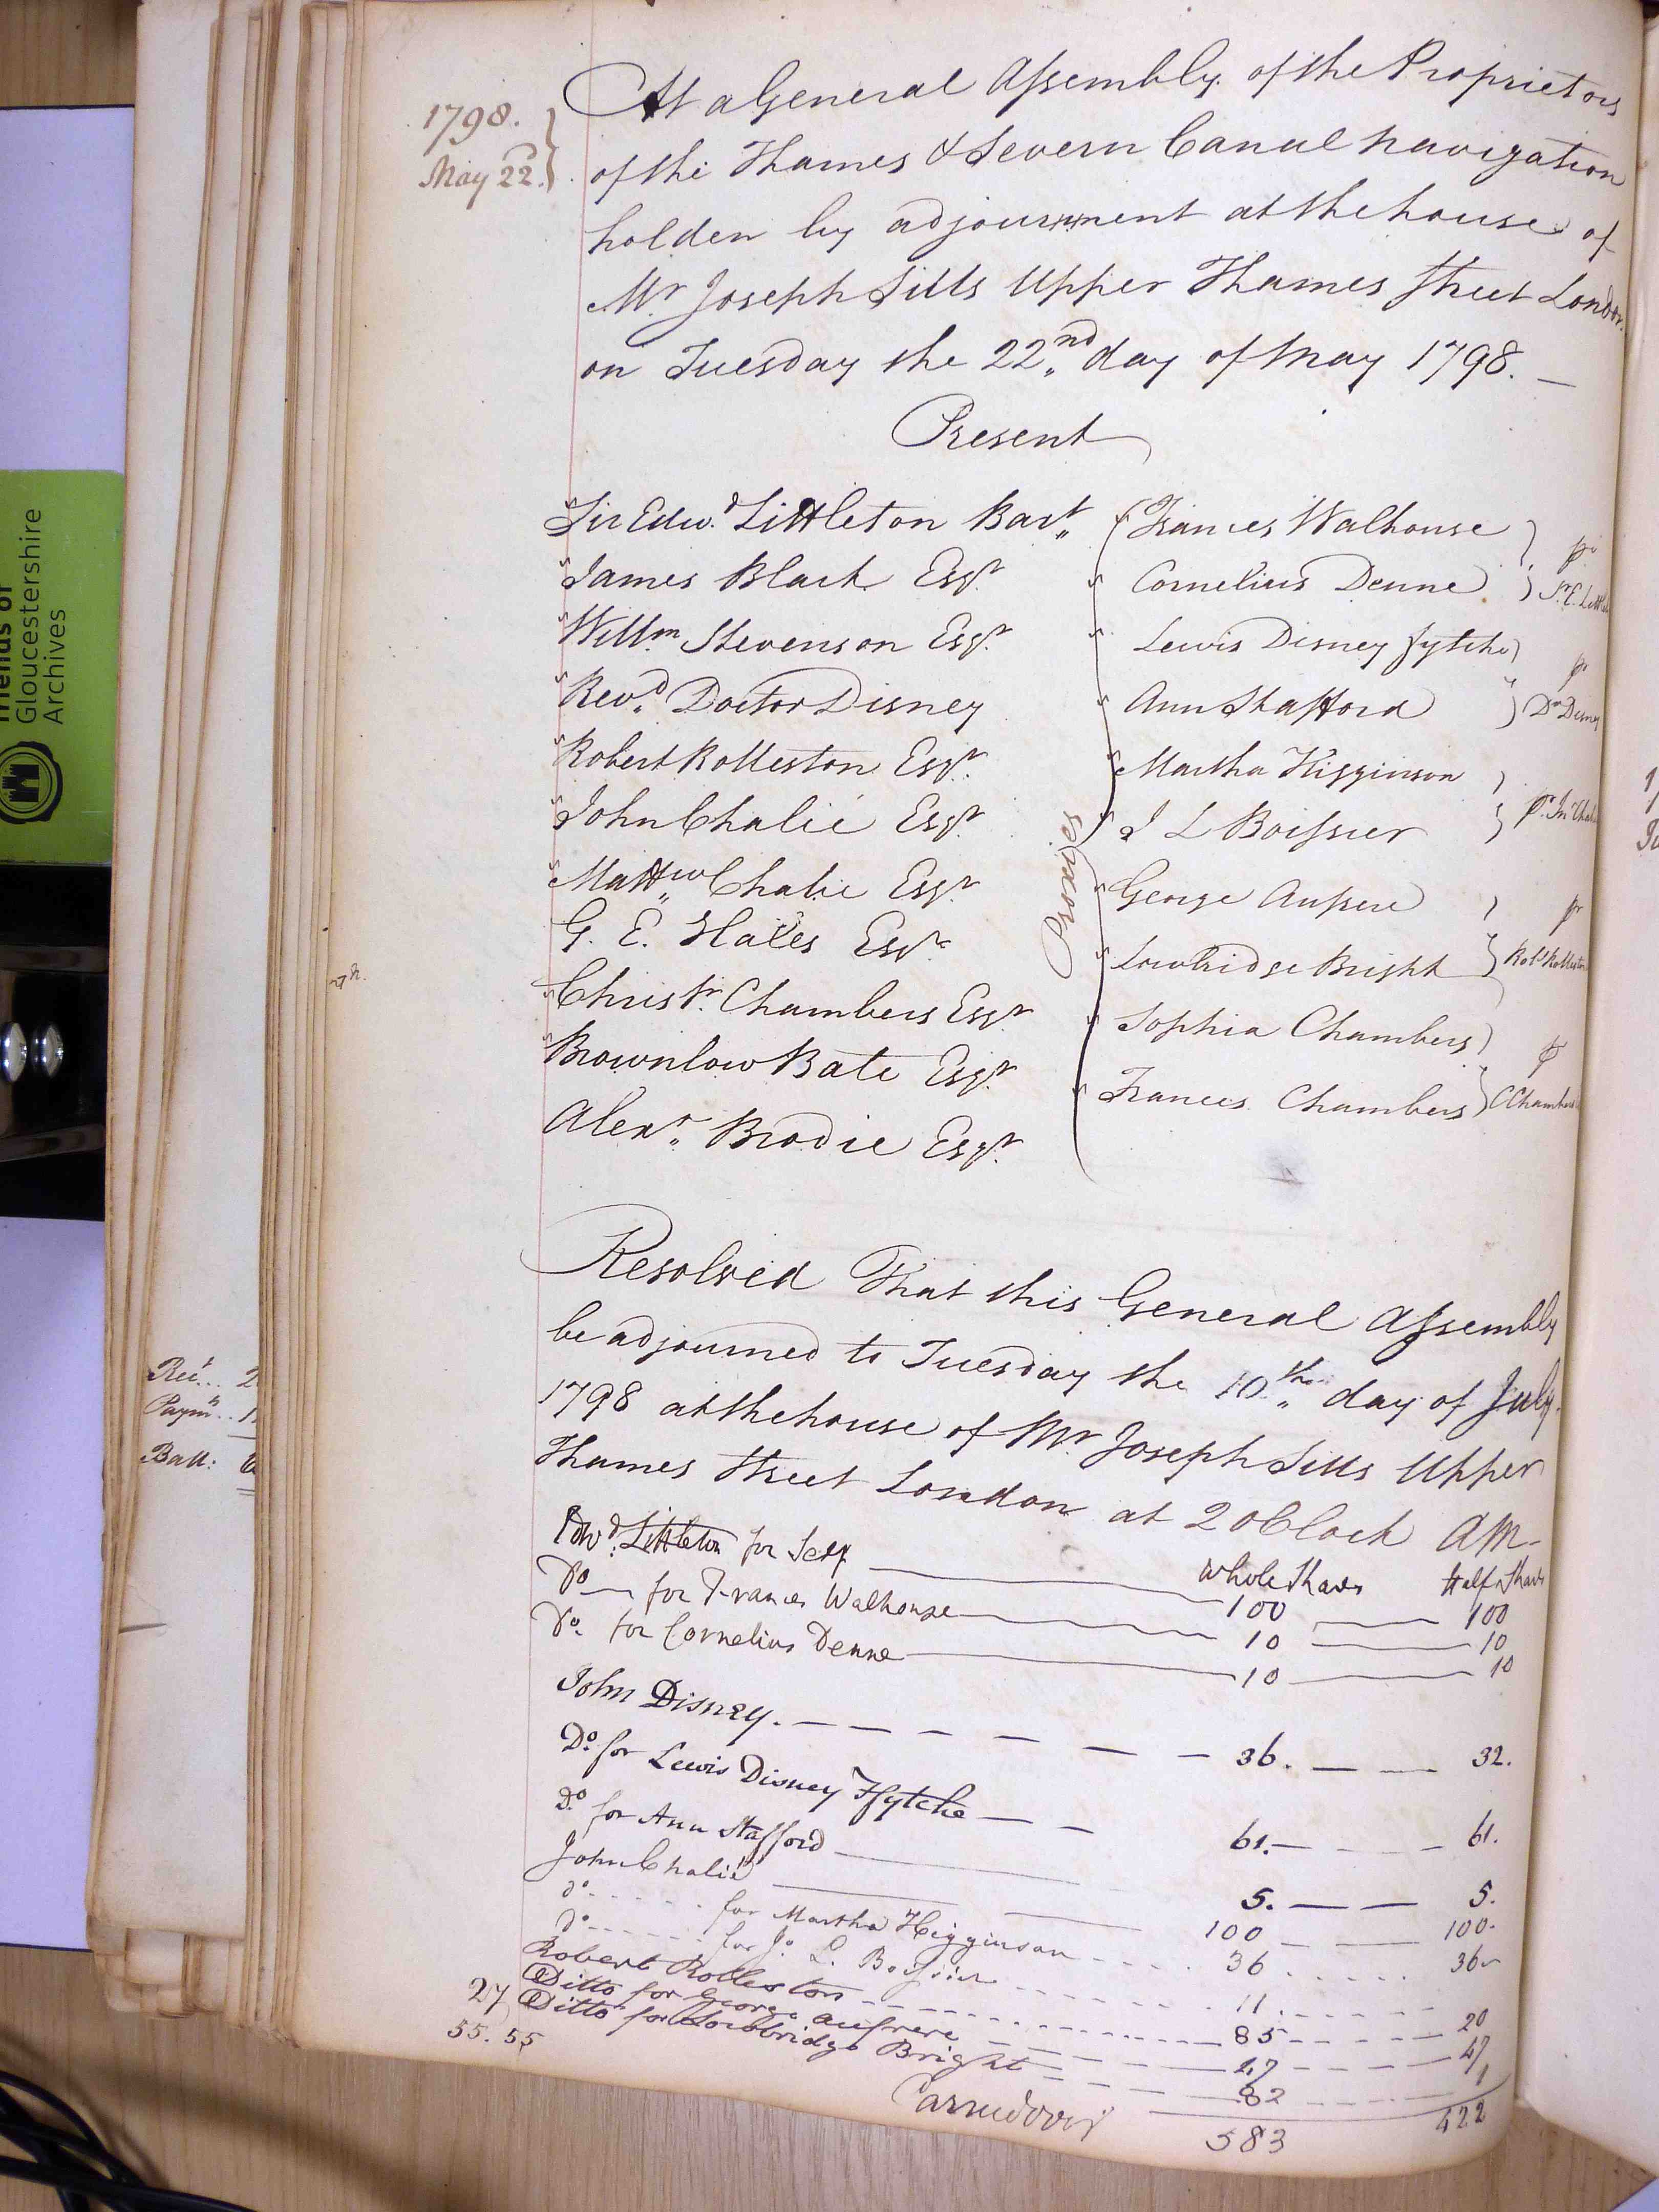 1798.
May 22.
At a General Assembly of the Proprietors
of the Thames & Severn Canal Navigation
holden by adjournment at the house of
Mr. Joseph Sills Upper Thames Street London
on Tuesday the 22nd day of May 1798.
Present
Sir Edwd. Littleton Bart.
James Black Esqr.
Willm. Stevenson Esqr.
Revd. Doctor Disney
Robert Rolleston Esqr.
John Chalié Esqr.
Mattw. Chalie Esqr.
G. E. Hales Esqr.
Christr. Chambers Esqr.
Brownlow Bate Esqr.
Alexr. Brodie Esqr.
Proxies
Frances Walhouse
Cornelius Denne
pr
Lewis Disney ffytche
Ann Stafford
pr
Dr Disney
Martha Higginson
J L Boissier
George Aufrere
Lowbridge Bright
pr
Robt Rolleston
Sophia Chambers
Frances Chambers
C Chambers
Resolved That this General Assembly
be adjourned to Tuesday the 10th day of July
1798 at the house of Mr Joseph Sills Upper
Thames Street London at 2 oClock AM.
whole Shares Half Shares
Edwd. Littleton for Self 100 100
Do for Frances Walhouse 10 10
Do. for Cornelius Denne 10 10
John Disney. 36. 32.
Do. for Lewis Disney Ffytche 61. 61.
Do. for Ann Stafford 5. 5.
John Chalié 100 100.
do. for Martha Higginson 36 36
do. for Jo. L. Boissier 11
Robert Rolleston 85 20
Ditto for George Aufrere 47 47
27 Ditto for Lowbridge Bright 82 1
55. 55
Carried over 583 422
Friends of
Gloucestershire
Archives
Recd... 2
Paymts..
Ball: